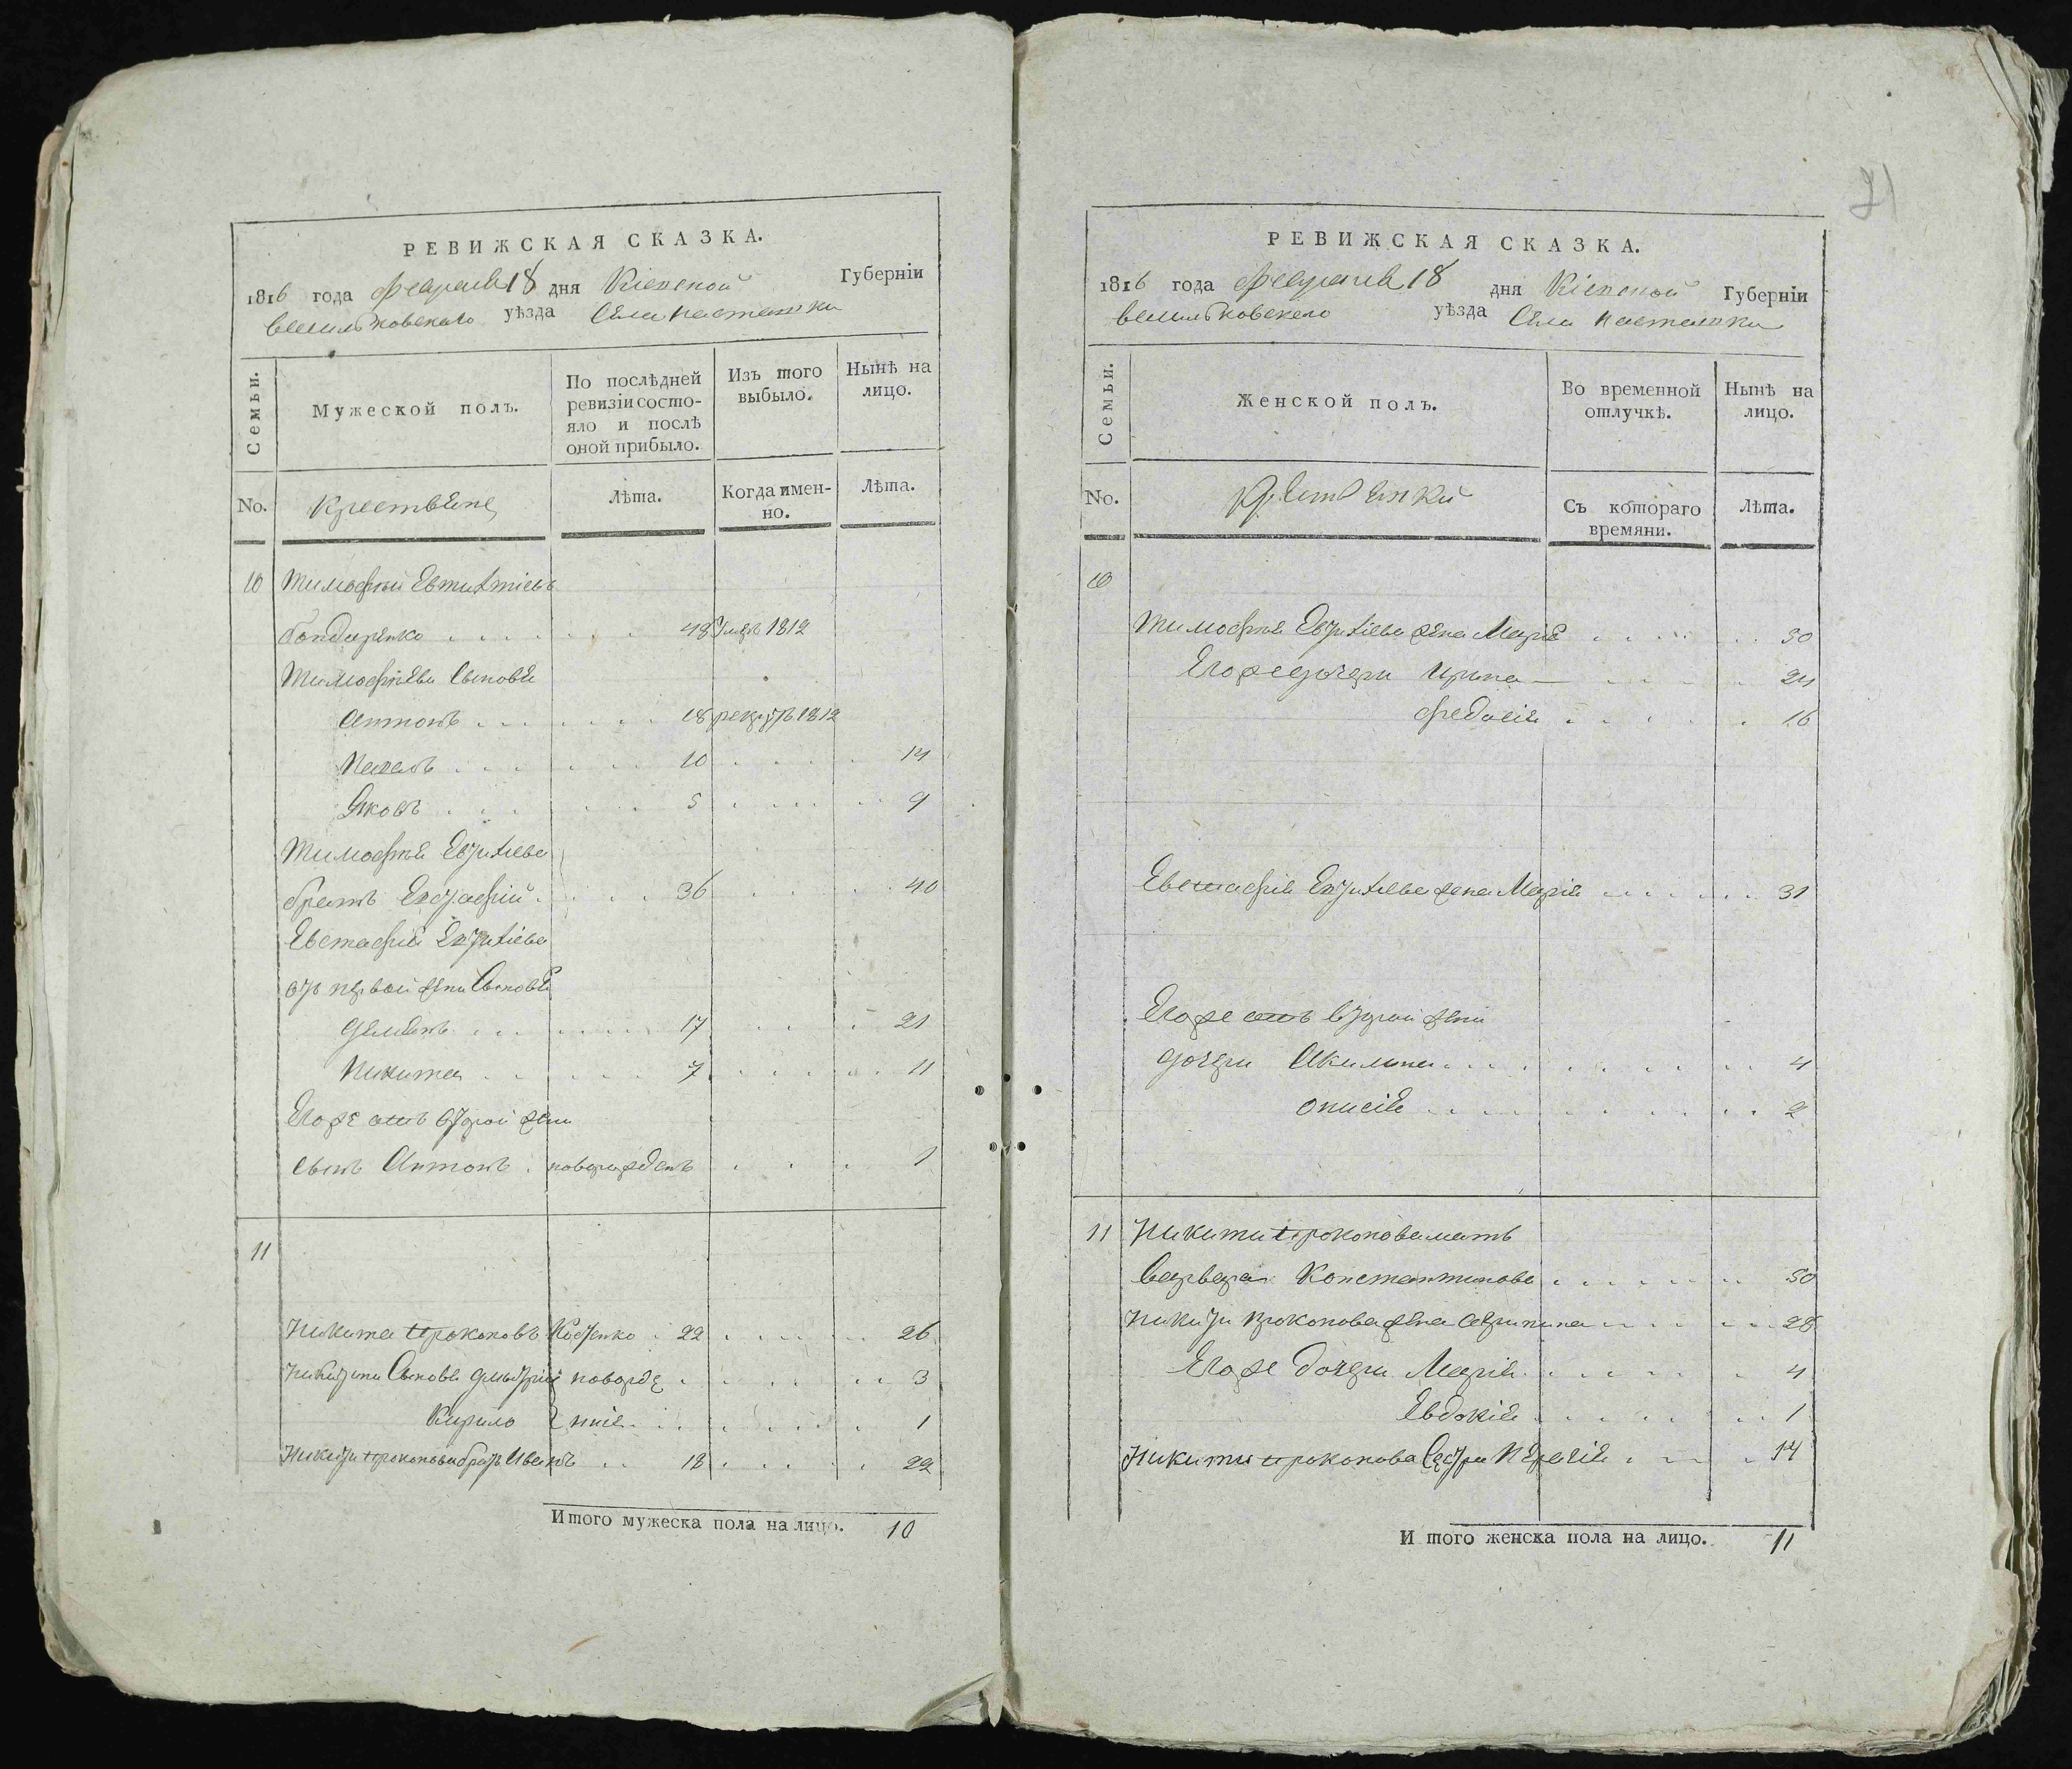 РЕВИЖСКАЯ СКАЗКА.
1816 года февраля 18 дня Кіевской Губерніи
васильковского уѣзда Села насташки
Семьи.
Мужеской полъ.
По послѣдней ревизіи состо-
яло и послѣ
оной прибыло.
Изъ того
выбыло.
Нынѣ на
лицо.
No.
крестьяне
Лѣта.
Когда имен-
но.
Лѣта.
10 Тимофей Евтихіевъ
бондаренко 48 умеръ 1812
Тимофѣевы Сыновья
Антонъ 18 рекрутъ 1812
Павелъ 10 14
Яковъ 5 9
Тимофея Евтихіева
братъ Евстафій 36 40
Евстафія Евтихіева
отъ первой жены Сыновья
Демянъ 17 21
Никита 7 11
Егоже отъ второй жены
сынъ Антонъ новорожденъ 1
11
Никита Прокоповъ Костенко 22 26
Никитины Сыновья дмытрій новорож 3
Кирило нніе 1
Никиты прокопова братъ Иванъ 18 22
Итого мужеска пола на лицо. 10
71
РЕВИЖСКАЯ СКАЗКА.
1816 года февраля 18 дня Кіевской Губерніи
васильковского уѣзда Села насташки
Семьи.
Женской полъ.
Во временной
отлучкѣ.
Нынѣ на
лицо.
No.
крестьянки
Съ котораго
времяни.
Лѣта.
10
Тимофея Евтихіева жена Марія 50
Егоже дочери Ирина 24
Федосія 16
Евстафія Евтихіева жена Марія 31
Егоже отъ второй жены
дочери Акилина 4
Онисія 2
11 Никиты прокопова мать
Варвара Константинова 50
Никиты прокопова жена Агрипина 28
Егоже дочери Марія 4
Евдокія 1
Никиты прокопова Сестра 14
И того женска пола на лицо. 11